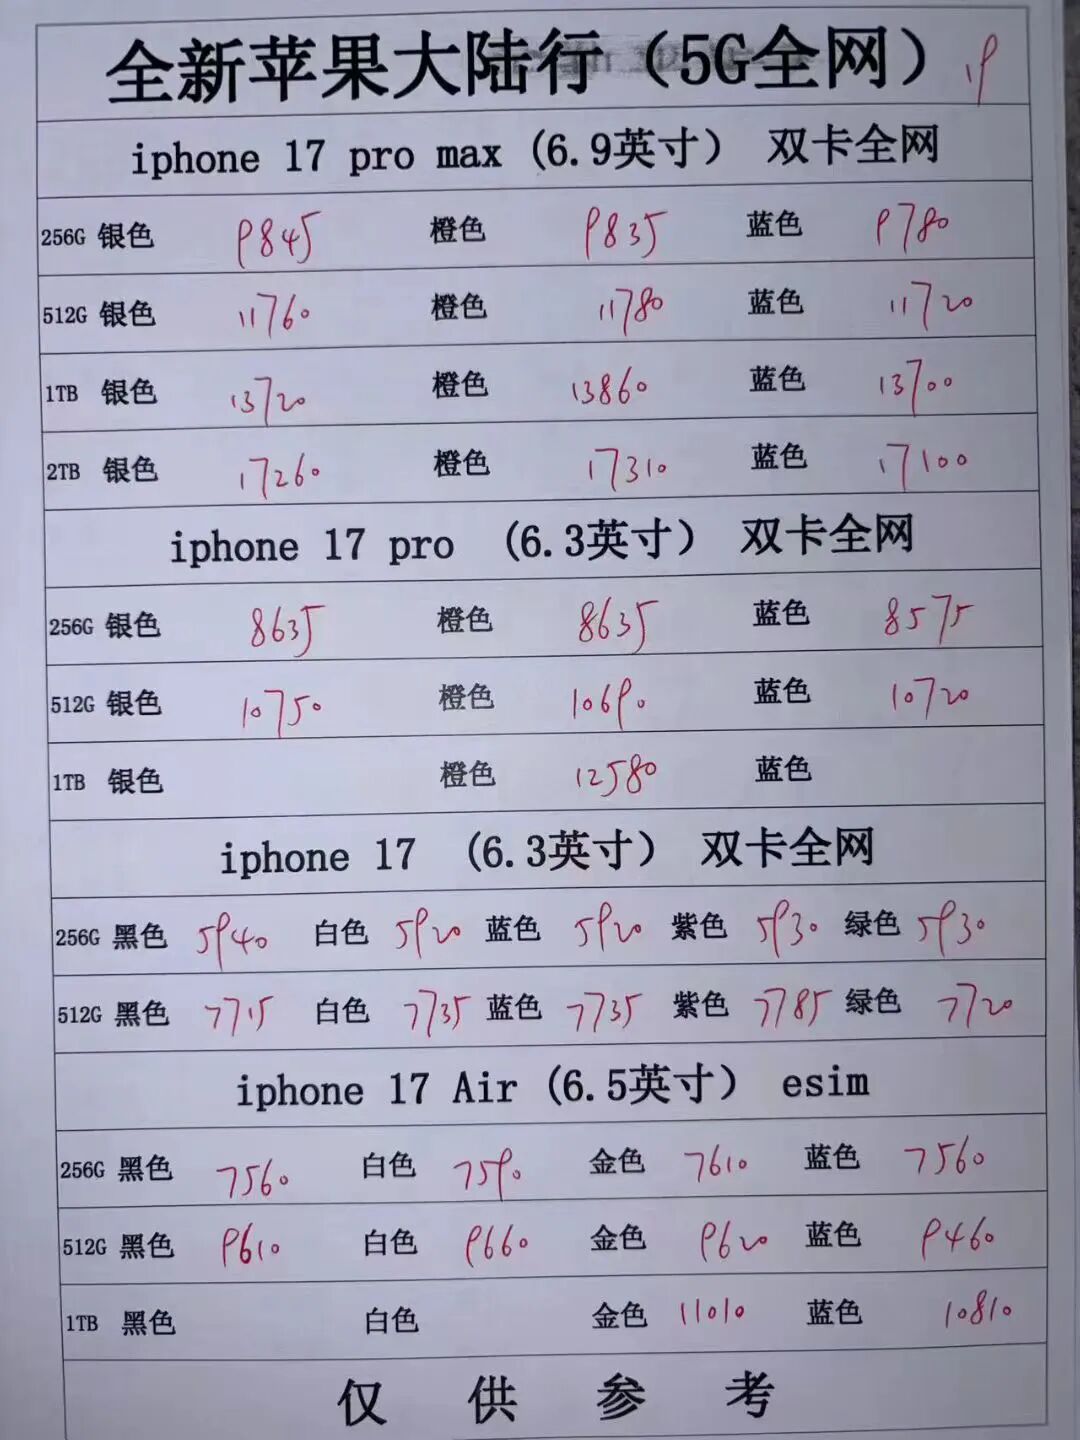 全新苹果大陆行（5G全网） 19
iphone 17 pro max (6.9英寸） 双卡全网
256G 银色 9845 橙色 9835 蓝色 9780
512G 银色 11760 橙色 11780 蓝色 11720
1TB 银色 13720 橙色 13860 蓝色 13700
2TB 银色 17260 橙色 17310 蓝色 17100
iphone 17 pro （6.3英寸） 双卡全网
256G 银色 8635 橙色 8635 蓝色 8575
512G 银色 10750 橙色 10690 蓝色 10720
1TB 银色 橙色 12580 蓝色
iphone 17 （6.3英寸） 双卡全网
256G 黑色 5940 白色 5920 蓝色 5920 紫色 5930 绿色 5930
512G 黑色 7715 白色 7735 蓝色 7735 紫色 7785 绿色 7720
iphone 17 Air (6.5英寸） esim
256G 黑色 7560 白色 7590 金色 7610 蓝色 7560
512G 黑色 9610 白色 9660 金色 9620 蓝色 9460
1TB 黑色 白色 金色 11010 蓝色 10810
仅供参考